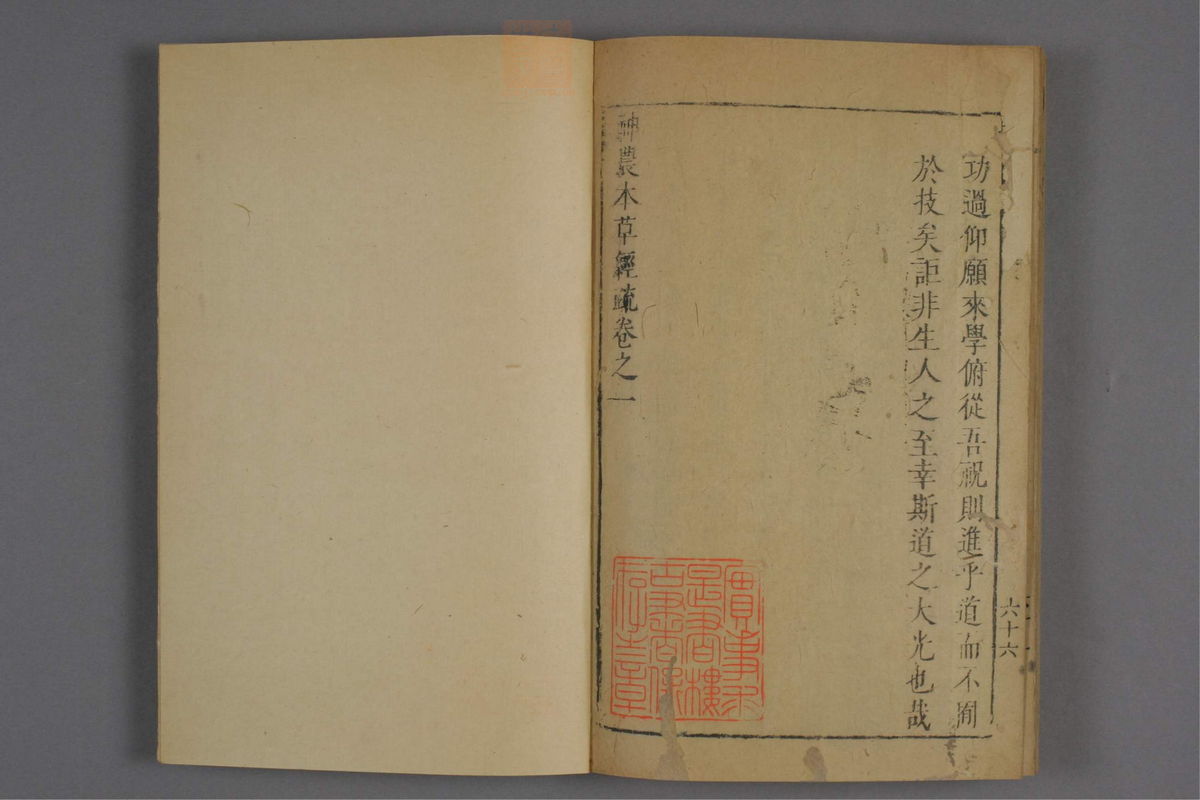 功過仰願來學俯從吾祝則進乎道而不囿
於技矣詎非生人之至幸斯道之大光也哉
神農本草經疏卷之一
六十六
實事求
是書樓